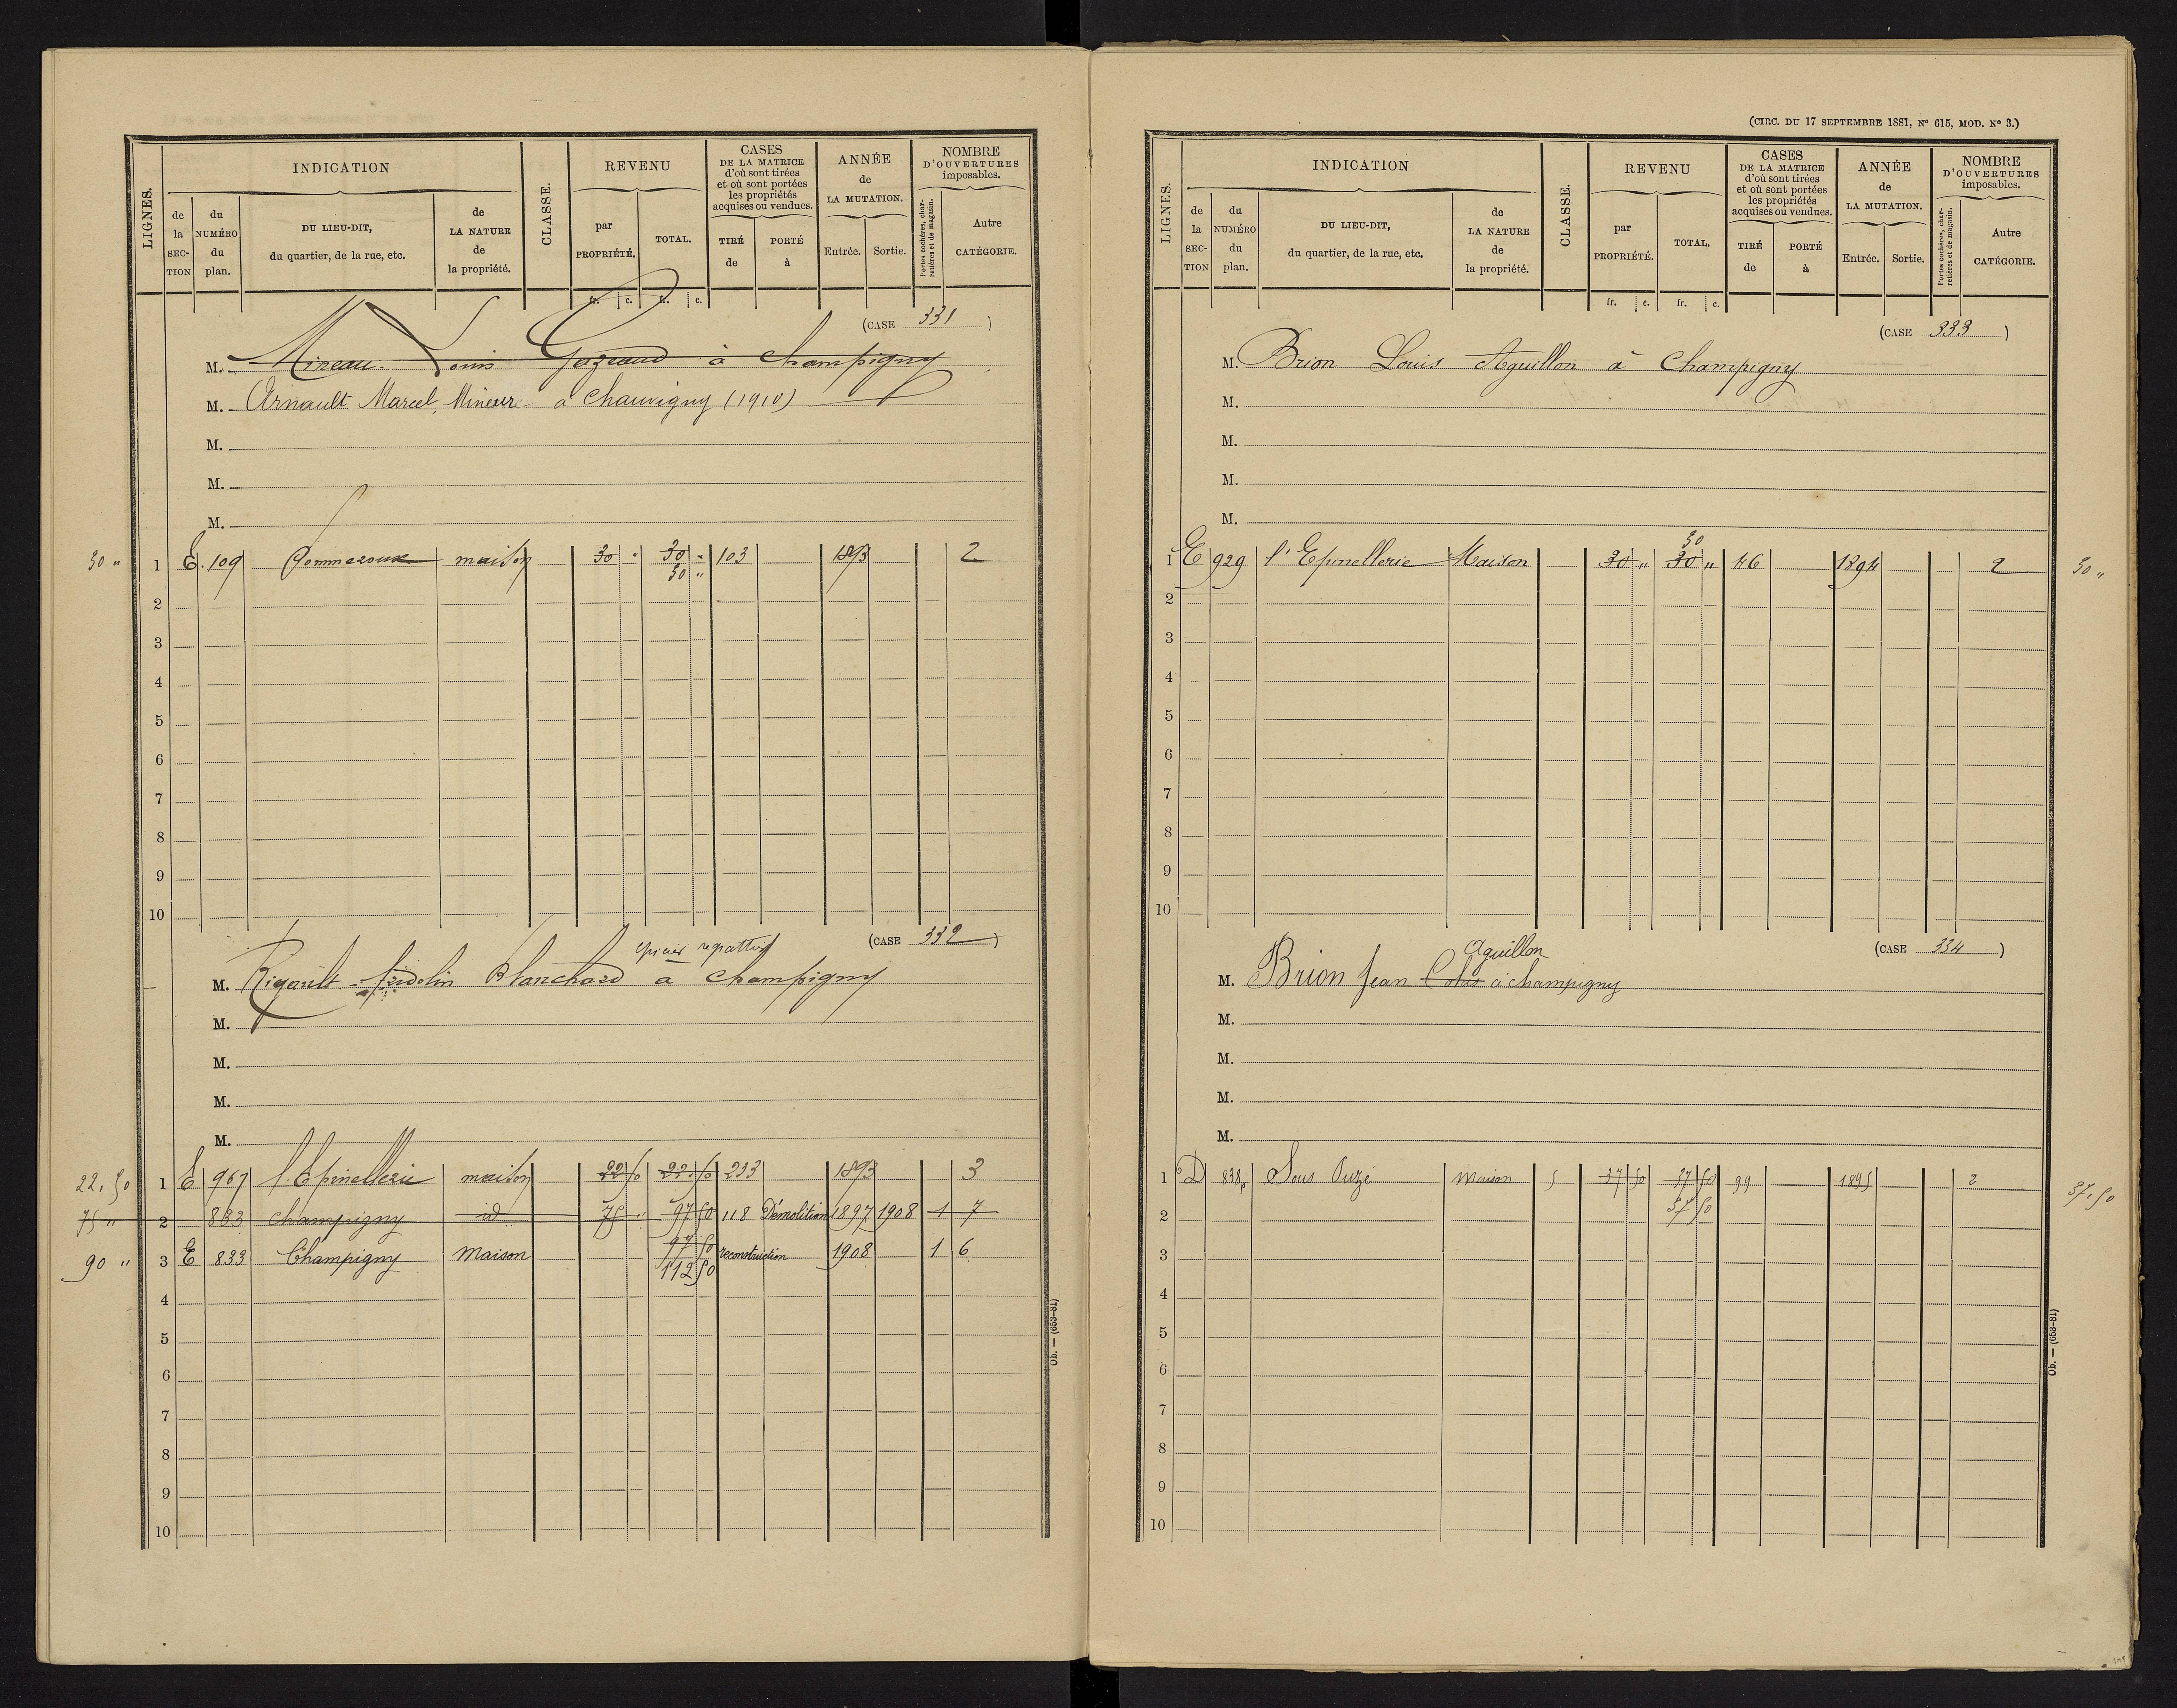 INDICATION
REVENU
CASES
DE LA MATRICE
d'où sont tirées
et où sont portées
les propriétés
acquises ou vendues.
ANNÉE
de
LA MUTATION.
NOMBRE
D'OUVERTURES
imposables.
LIGNES.
de la SECTION
du NUMÉRO du plan.
DU LIEU-DIT,
du quartier, de la rue, etc.
de LA NATURE de la propriété.
CLASSE.
par PROPRIÉTÉ.
TOTAL.
TIRÉ de
PORTÉ à
Entrée.
Sortie.
Portes cochères, charretières et de magasin.
Autre CATÉGORIE.
fr. c. fr. c.
(CASE 331)
M. Mineau Louis Gozeaud à Champigny
M. Arnault Marcel, Mineur à Chauvigny (1910)
M.
M.
M.
30 " 1 E 109 maison 30 " 30 " 103 1893 2
30 "
2
3
4
5
6
7
8
9
10
(CASE 332)
épicier regrattier
M. Rigault Fridolin Blanchard a champigny
M.
M.
M.
M.
22,50 1 E 967 l'Epinellerie maison 22 50 22 50 233 1893 3
75 " 2 833 champigny id 75 " 97 50 118 Démolition 1897 1908 1 7
97 50
90 " 3 E 833 Champigny Maison reconstruction 1908 1 6
112 50
4
5
6
7
8
9
10
Ob. — (653-81)
(CIRC. DU 17 SEPTEMBRE 1881, N° 615, MOD. N° 3.)
INDICATION
REVENU
CASES
DE LA MATRICE
d'où sont tirées
et où sont portées
les propriétés
acquises ou vendues.
ANNÉE
de
LA MUTATION.
NOMBRE
D'OUVERTURES
imposables.
LIGNES.
de la SECTION
du NUMÉRO du plan.
DU LIEU-DIT,
du quartier, de la rue, etc.
de LA NATURE de la propriété.
CLASSE.
par PROPRIÉTÉ.
TOTAL.
TIRÉ de
PORTÉ à
Entrée.
Sortie.
Portes cochères, charretières et de magasin.
Autre CATÉGORIE.
fr. c. fr. c.
(CASE 333)
M. Brion Louis Aguillon à Champigny
M.
M.
M.
M.
30
1 E 929 l'Epinellerie Maison 30 " 30 " 46 1894 2 30 "
2
3
4
5
6
7
8
9
10
(CASE 334)
Aguillon
M. Brion Jean à champigny
M.
M.
M.
M.
1 D 838p Sous Ouzé Maison 5 37 50 37 50 99 1895 2 37,50
2 37 50
3
4
5
6
7
8
9
10
Ob. — (653-81)